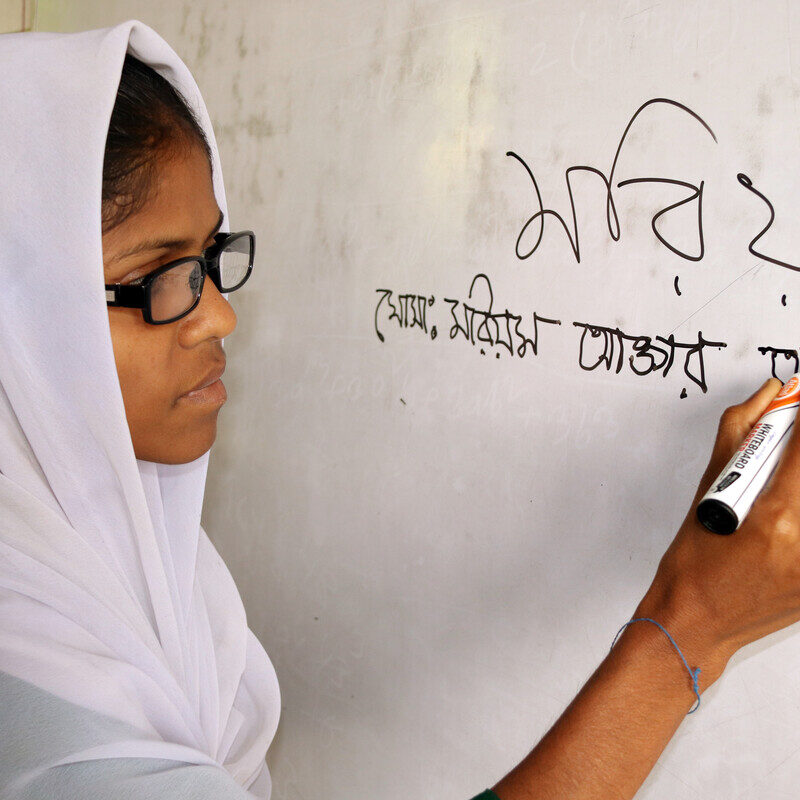 মরিয়
মোসা: মরিয়ম আক্তার
WHITEBOARD